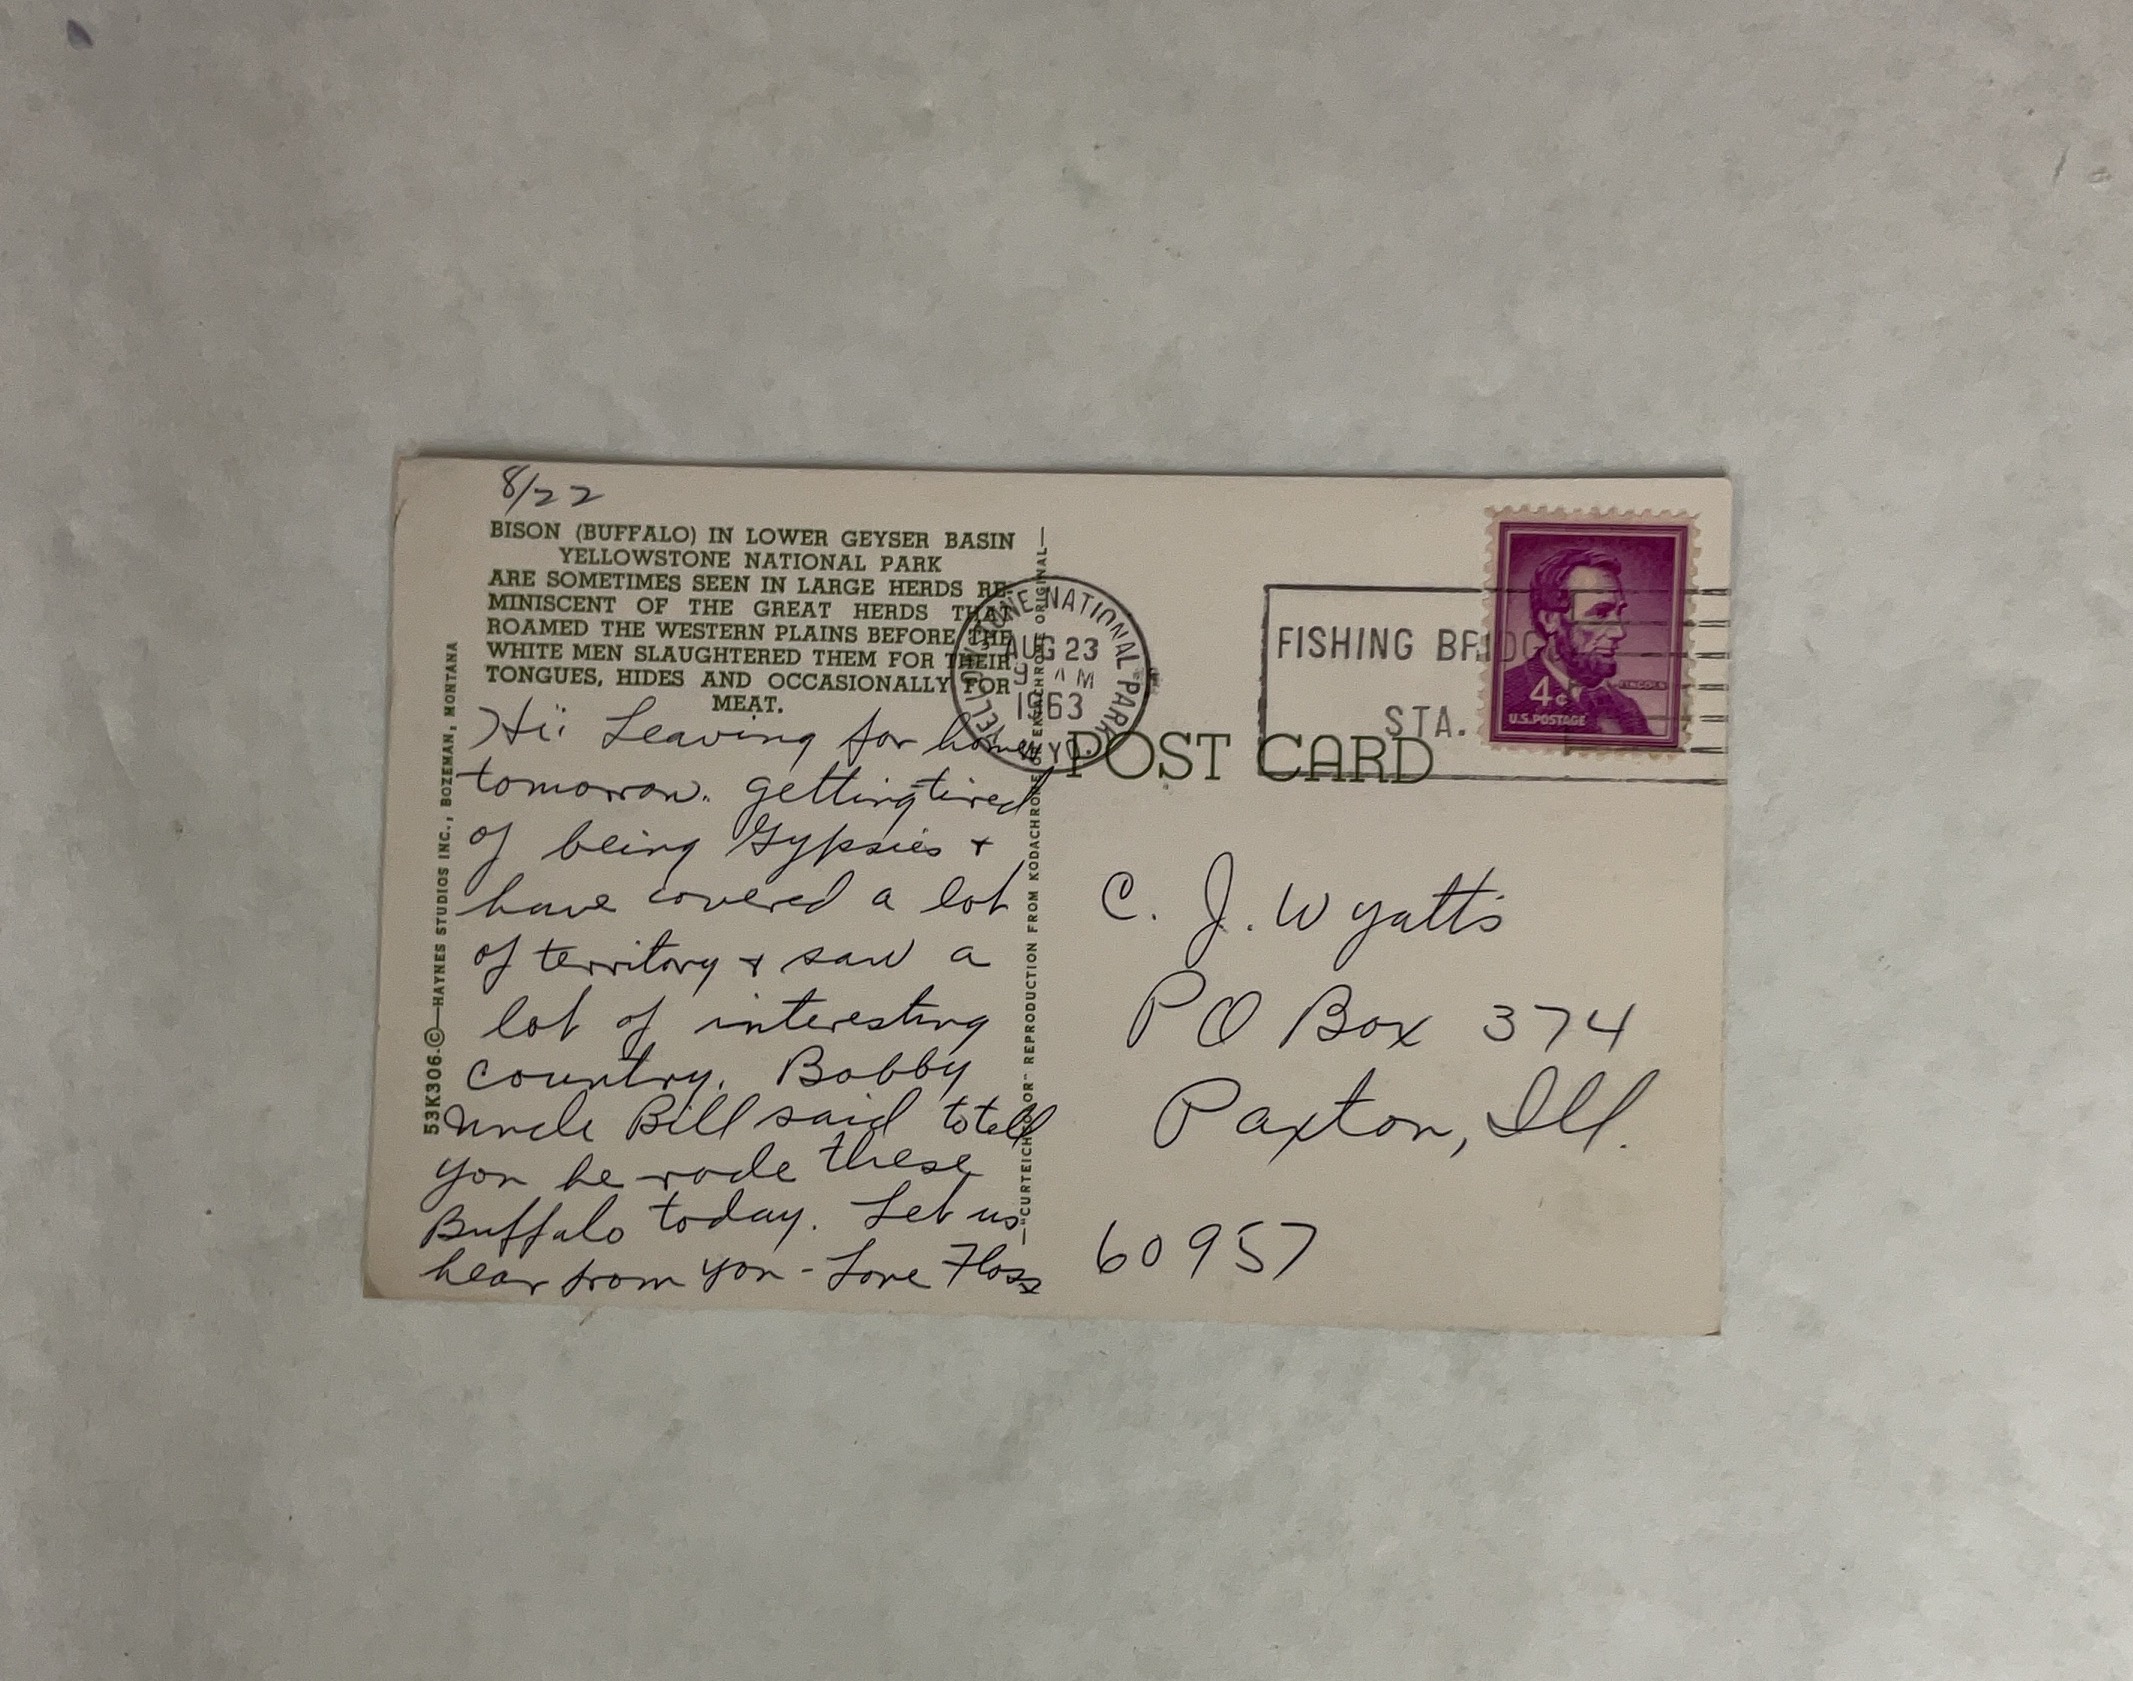 8/22
BISON (BUFFALO) IN LOWER GEYSER BASIN
YELLOWSTONE NATIONAL PARK
ARE SOMETIMES SEEN IN LARGE HERDS RE-
MINISCENT OF THE GREAT HERDS THAT
ROAMED THE WESTERN PLAINS BEFORE THE
WHITE MEN SLAUGHTERED THEM FOR THEIR
TONGUES, HIDES AND OCCASIONALLY FOR
MEAT.
Hi: Leaving for home
tomorrow. getting tired
of being Gypsies +
have covered a lot
of territory + saw a
lot of interesting
country. Bobby
Uncle Bill said to tell
you he rode these
Buffalo today. Let us
hear from you - Love Floss
53K306-©—HAYNES STUDIOS INC., BOZEMAN, MONTANA
—"CURTEICHCOLOR" REPRODUCTION FROM KODACHROME OR EKTACHROME ORIGINAL—
YELLOWSTONE NATIONAL PARK
AUG 23
9 AM
1963
WYO.
FISHING BRIDGE
STA.
4¢
LINCOLN
U.S. POSTAGE
POST CARD
C. J. Wyatts
PO Box 374
Paxton, Ill.
60957